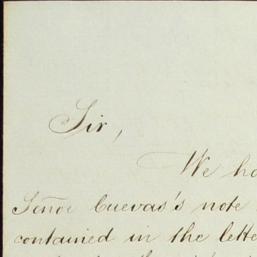 Sir,
We ha
Señor Cuevas's note
contained in the lette